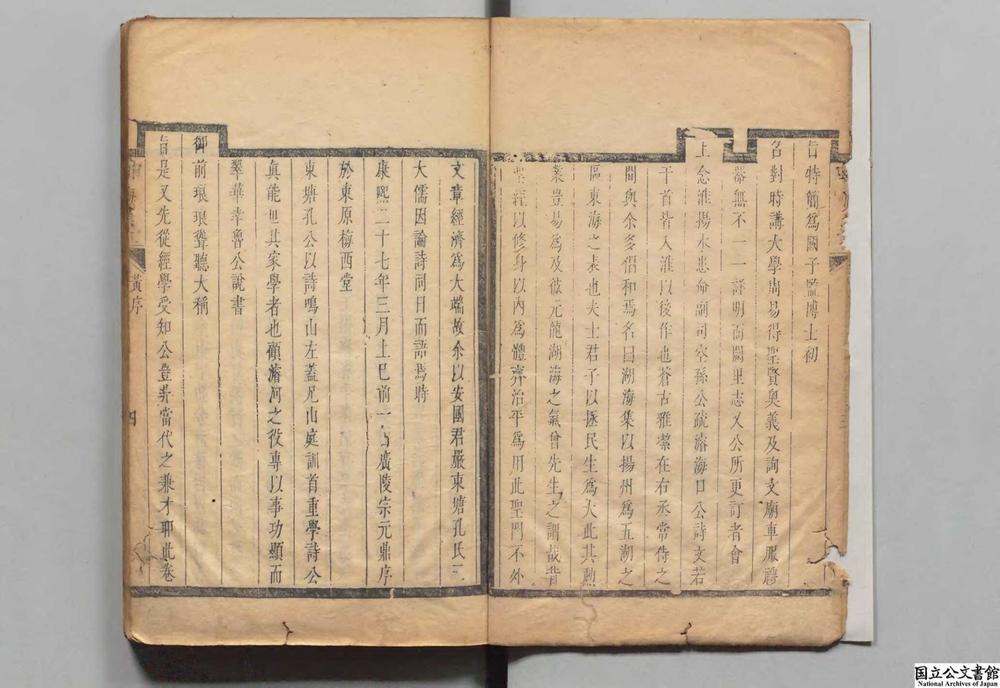 旨特簡為國子監博士初
召對時講大學周易得聖賢奧義及詢文廟車服禮
器無不一一詳明而闕里志又公所更訂者會
上念淮揚水患命副司空孫公疏濬海口公詩文若
干首皆入淮以後作也蒼古雅縶在右丞常侍之
間與余多倡和焉名曰湖海集以揚州為五湖之
區東海之表也夫士君子以拯民生為大此其勲
業豈易為及彼元龍湖海之氣曾先生之謂哉昔
聖經以修身以內為體齊治平為用此聖門不外
文章經濟為大端故余以安國君嚴東塘孔氏三
大儒因論詩同日而語焉時
康熙二十七年三月上巳前一日廣陵宗元鼎序
於東原梅西堂
東塘孔公以詩鳴山左蓋尼山庭訓首重學詩公
真能世其家學者也顧濬河之役專以事功顯而
翠華幸魯公說書
御前琅琅聳聽大稱
旨是又先從經學受知公豈非當代之兼才耶此卷
黃序
四
国立公文書館
National Archives of Japan